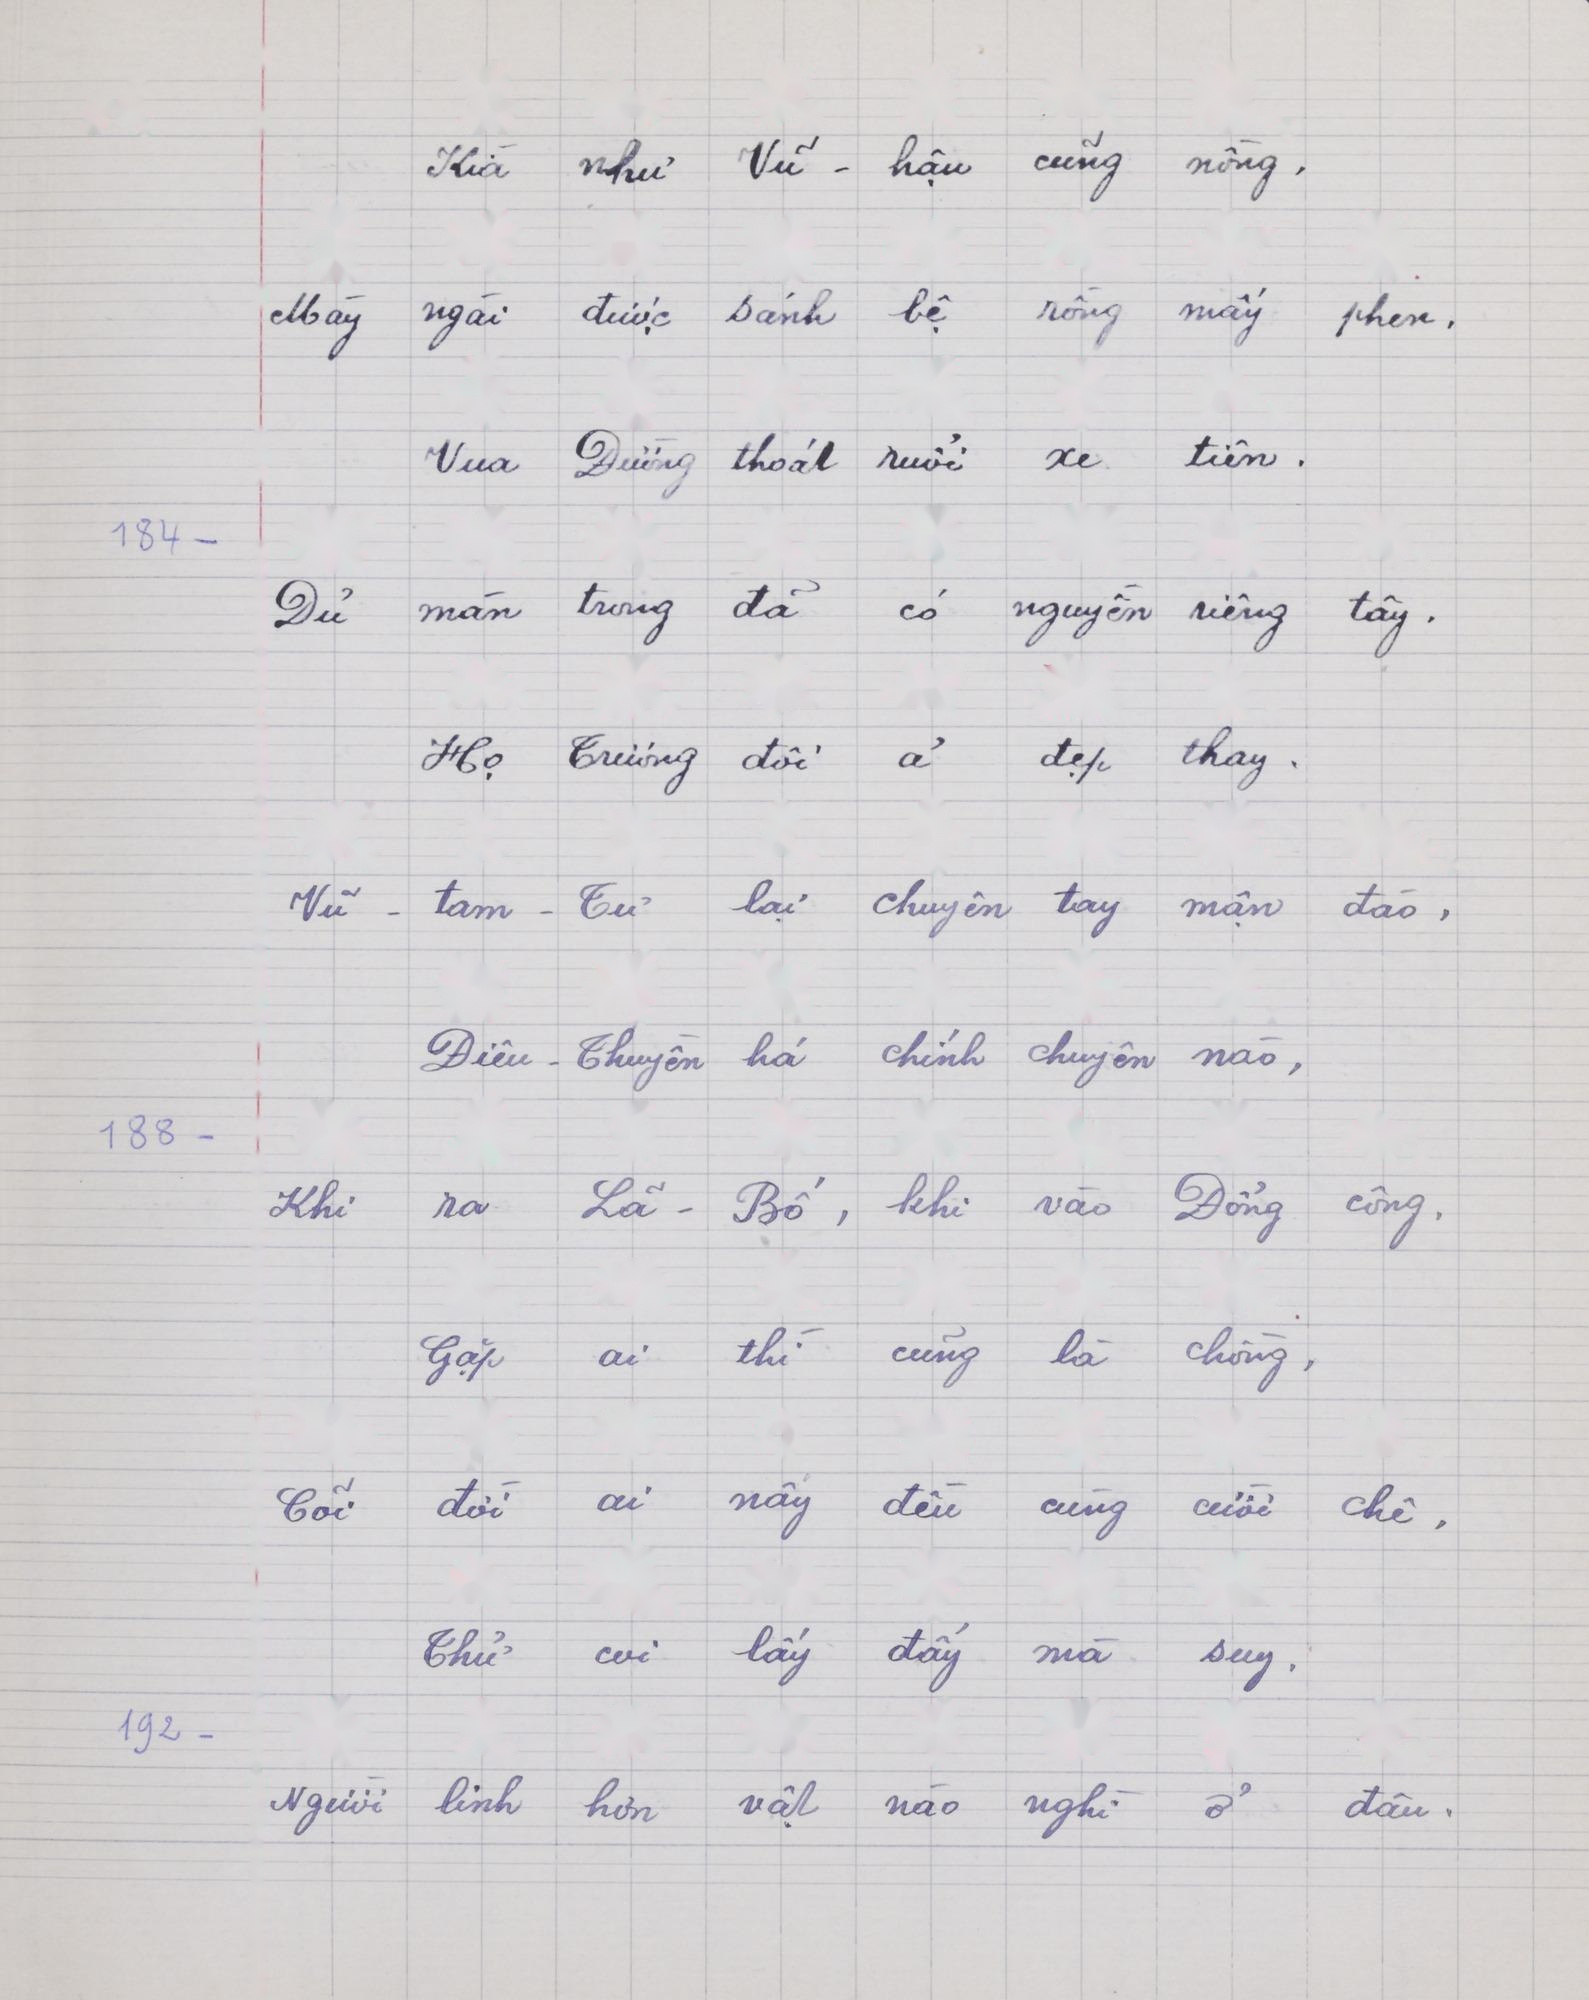 Kìa như Vũ-hậu cũng nồng,
Mày ngài được sánh bệ rồng mấy phen.
Vua Đường thoát ruổi xe tiên.
184-
Dử màn trong đã có nguyền riêng tây.
Họ Trương đôi ả đẹp thay.
Vũ-tam-Tư lại chuyên tay mận đào,
Điêu-Thuyền há chính chuyên nào,
188-
Khi ra Lã-Bố, khi vào Đổng công.
Gặp ai thì cũng là chồng,
Cõi đời ai nấy đều cùng cười chê,
Thử coi lấy đấy mà suy.
192-
Người linh hơn vật nào nghì ở đâu.